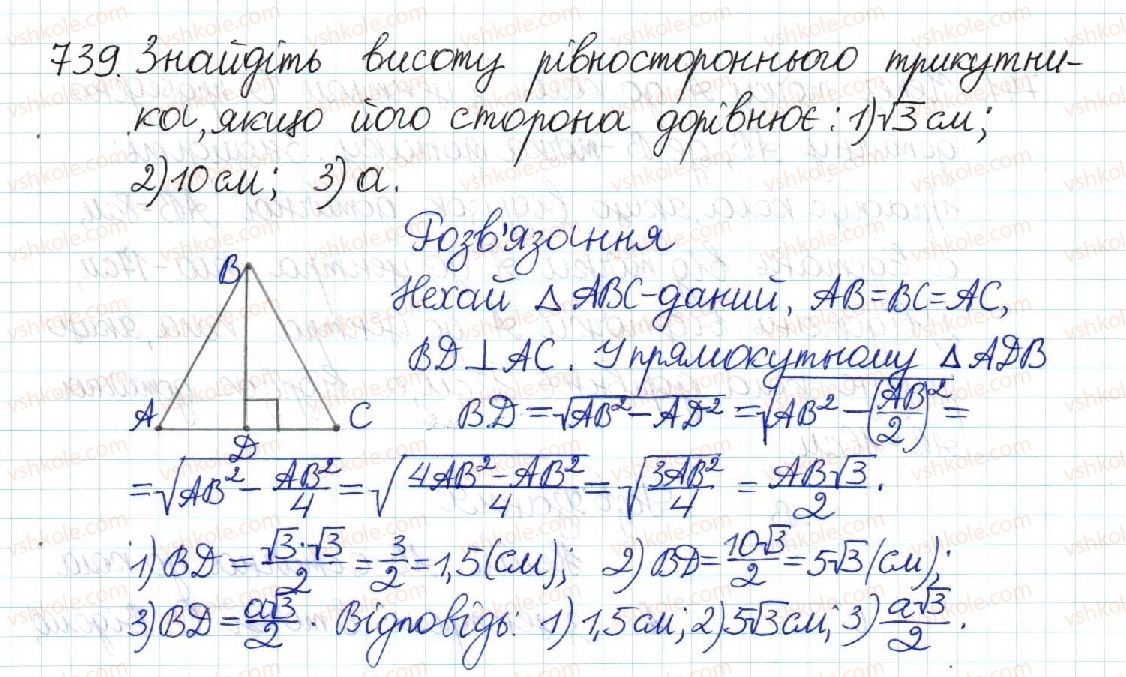 739. Знайдіть висоту рівностороннього трикутни-
ка, якщо його сторона дорівнює: 1) √3 см;
2) 10 см; 3) a.
Розв'язання
Нехай △ABC - даний, AB = BC = AC,
BD ⊥ AC. У прямокутному △ADB
B
A
D
C
BD = √(AB² - AD²) = √(AB² - (AB/2)²) =
= √(AB² - AB²/4) = √((4AB² - AB²)/4) = √(3AB²/4) = AB√3/2.
1) BD = √3·√3/2 = 3/2 = 1,5 (см); 2) BD = 10√3/2 = 5√3 (см);
3) BD = a√3/2. Відповідь: 1) 1,5 см; 2) 5√3 см; 3) a√3/2.